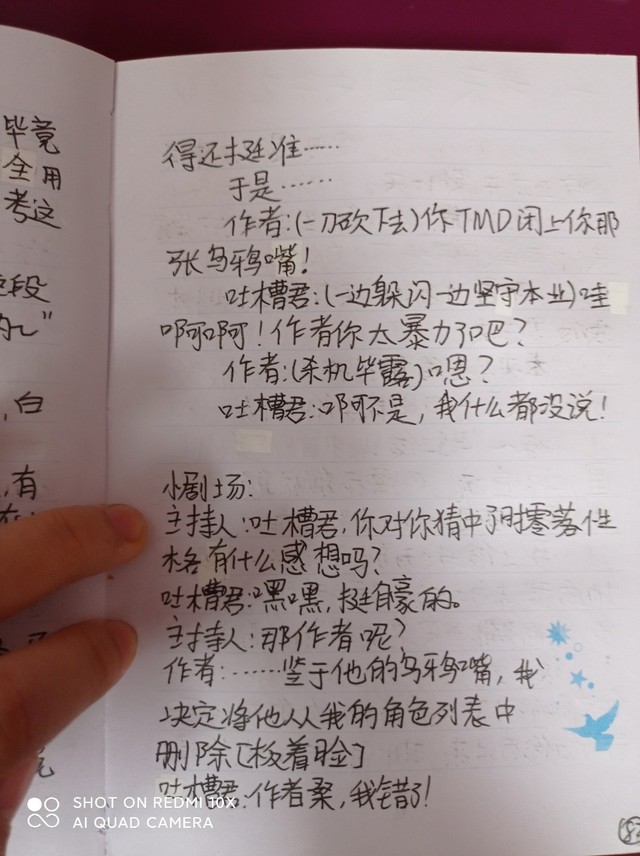 毕竟
全用
考这
段
"
,白
,有
得还挺准……
于是……
作者:(一刀砍下去)你TMD闭上你那
张乌鸦嘴!
吐槽君:(一边躲闪一边坚守本业)哇
啊啊啊!作者你太暴力了吧?
作者:(杀机毕露)嗯?
吐槽君:啊不是,我什么都没说!
小剧场:
主持人:吐槽君,你对你猜中了时零落性
格有什么感想吗?
吐槽君:嘿嘿,挺自豪的。
主持人:那作者呢?
作者:……鉴于他的乌鸦嘴,我
决定将他从我的角色列表中
删除[板着脸]
吐槽君:作者桑,我错了!
SHOT ON REDMI 10X
AI QUAD CAMERA